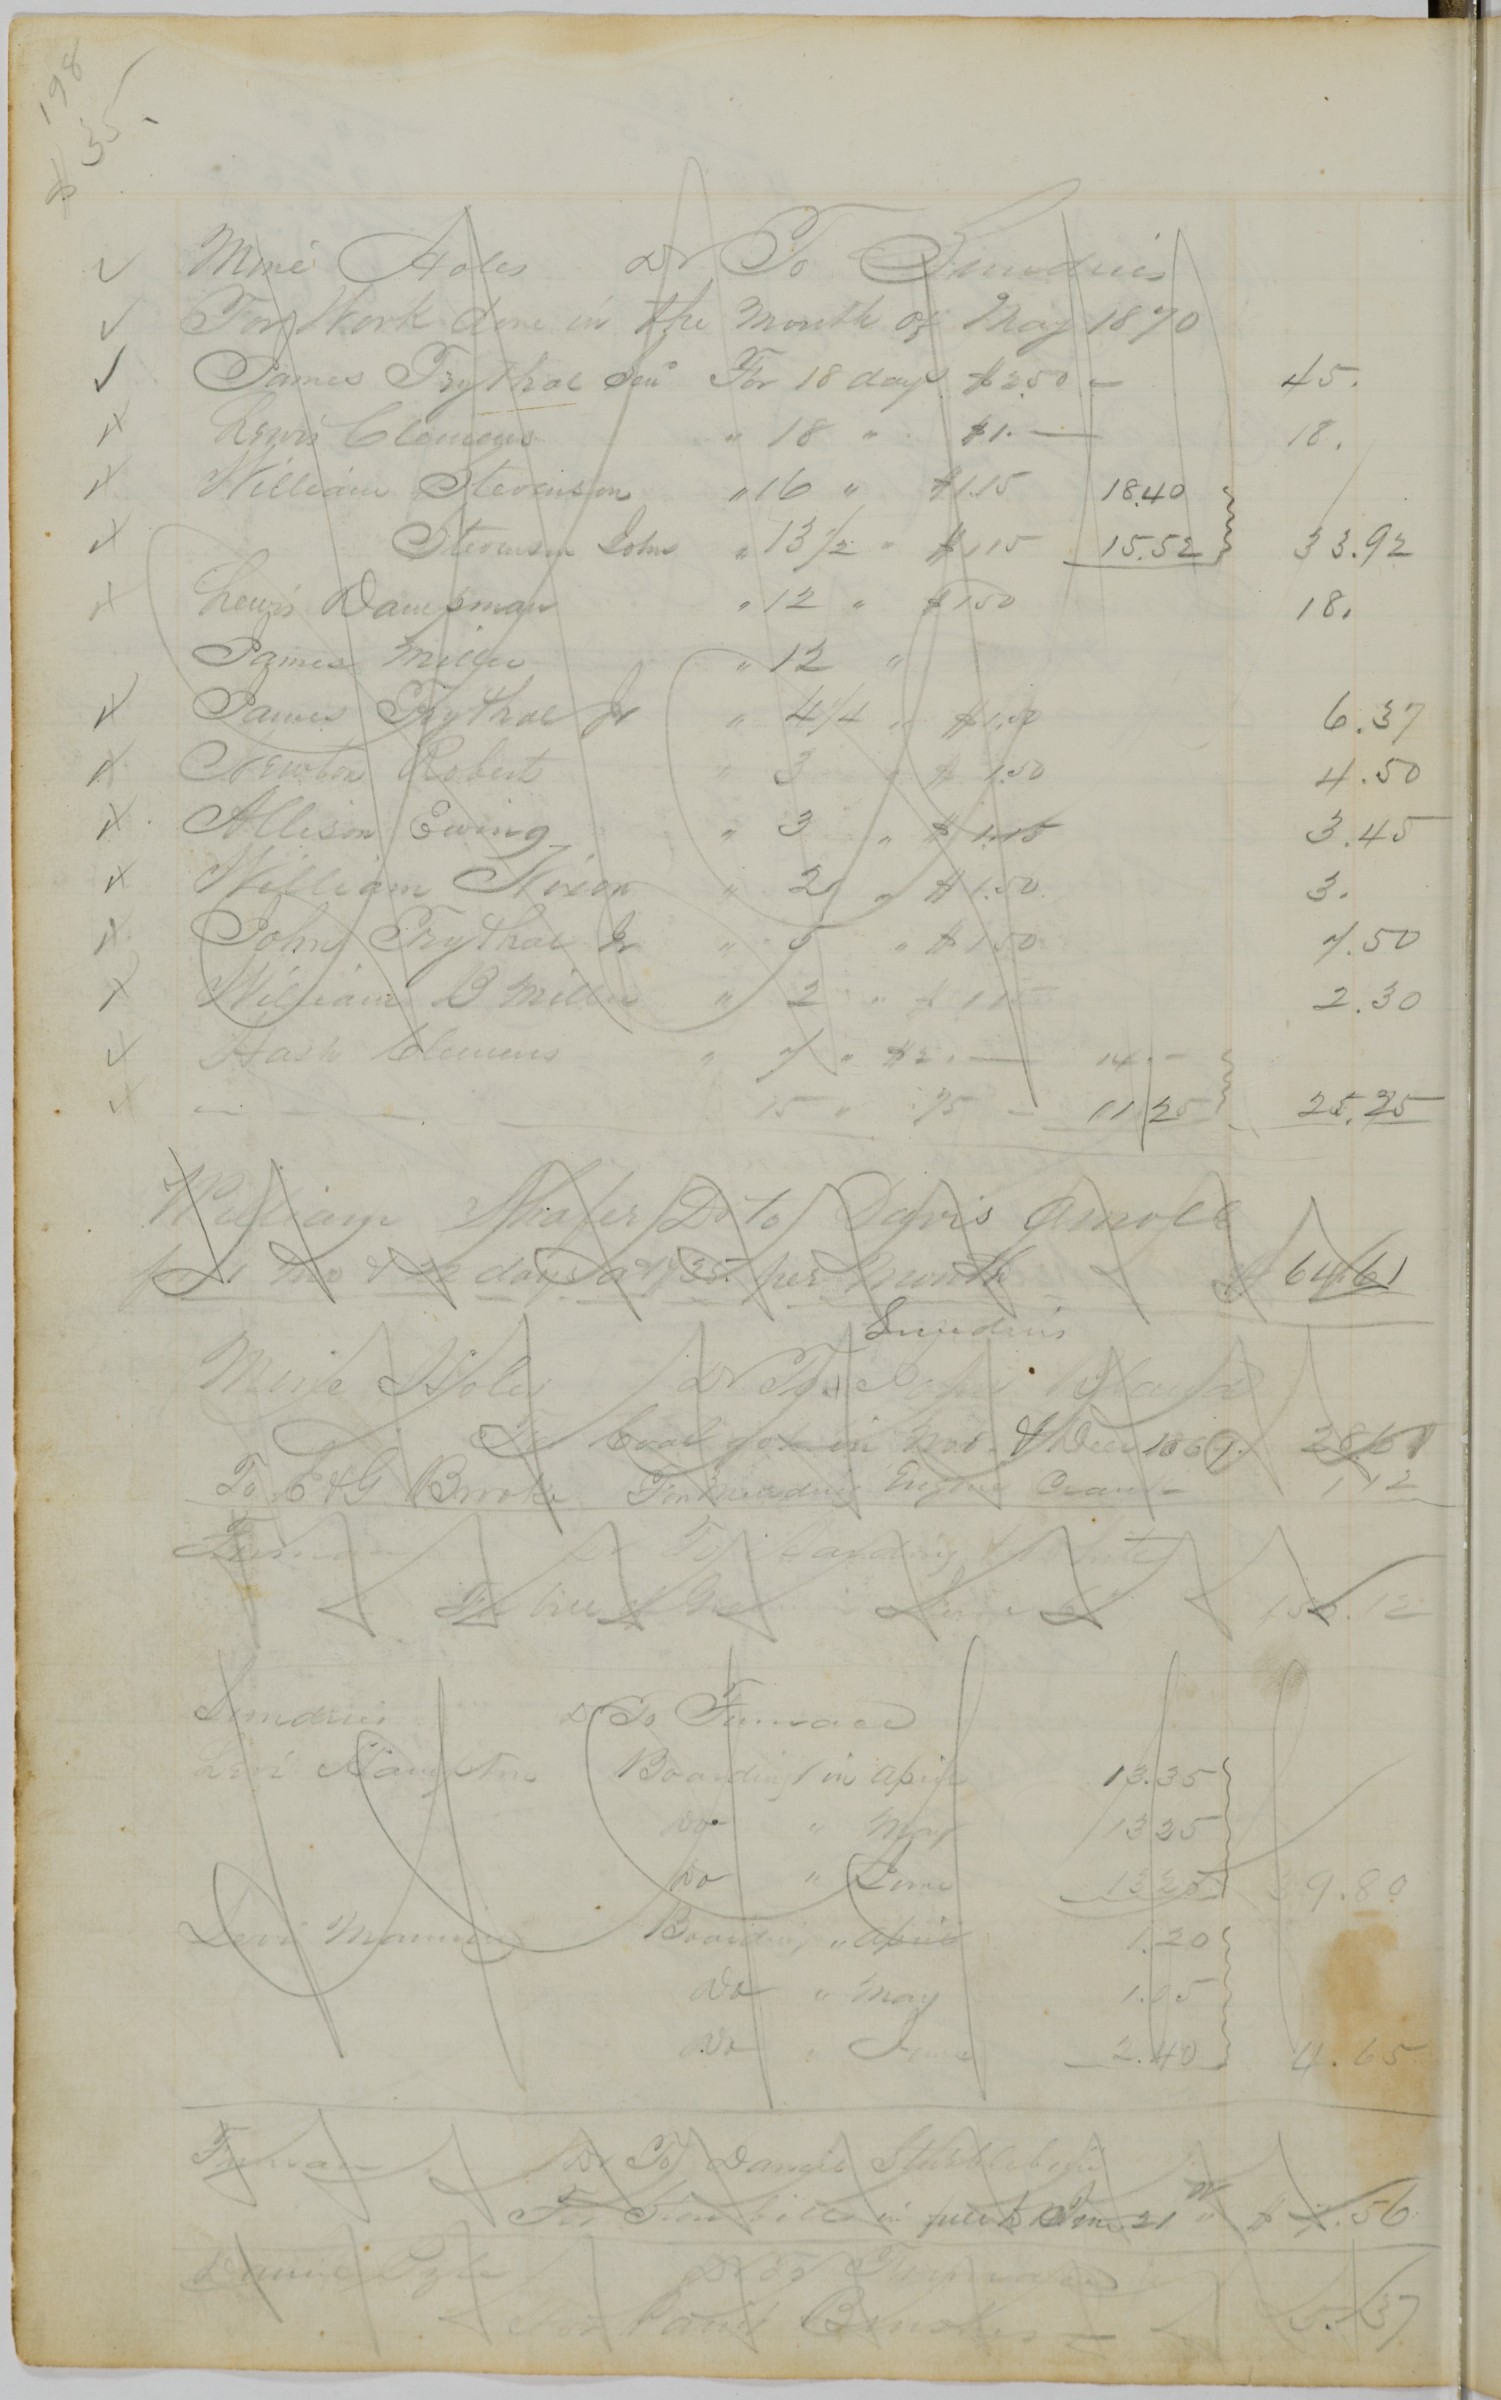 198
$35.
Mine Holes Dr To Sundries
For Work done in the Month of May 1870
James Trythal Senr For 18 days $2.50 — 45.
Lewis Clemens " 18 " $1. — 18.
William Stevenson " 16 " $1.15 18.40
Stevenson John " 13 1/2 " $1.15 15.52 33.92
Lewis Dampman " 12 " $1.50 18.
James Miller " 12 "
James Trythal Jr " 4 1/4 " $1.50 6.37
Newton Robert " 3 " $1.50 4.50
Allison Ewing " 3 " $1.15 3.45
William Nixon " 2 " $1.50 3.
John Trythal Jr " 5 " $1.50 7.50
William B Miller " 2 " $1.15 2.30
Hash Clemens " 7 " $2. — 14. —
— — — 15 " .75 — 11.25 25.25
William Shafer Dr to Davis Arnold
1 Mo & 22 days at $35. per Month $64.61
Sundries
Mine Holes Dr To John
For Coal got in Nov. & Dec 1869. 28.61
To E & G Brooke For Mending Engine Crank 1.12
Furnace Dr To
For bill of June
Sundries Dr To Furnace
Levi Hampton Boarding in April 13.35
Do " May 13.25
Do " June 13.20 39.80
Levi Boarding " April 1.20
Do " May 1.05
Do " June 2.40 4.65
Furnace Dr To Daniel Stubblebine
For bill in full to June 21 " $ .56
Daniel Dr To Furnace
For 5.37